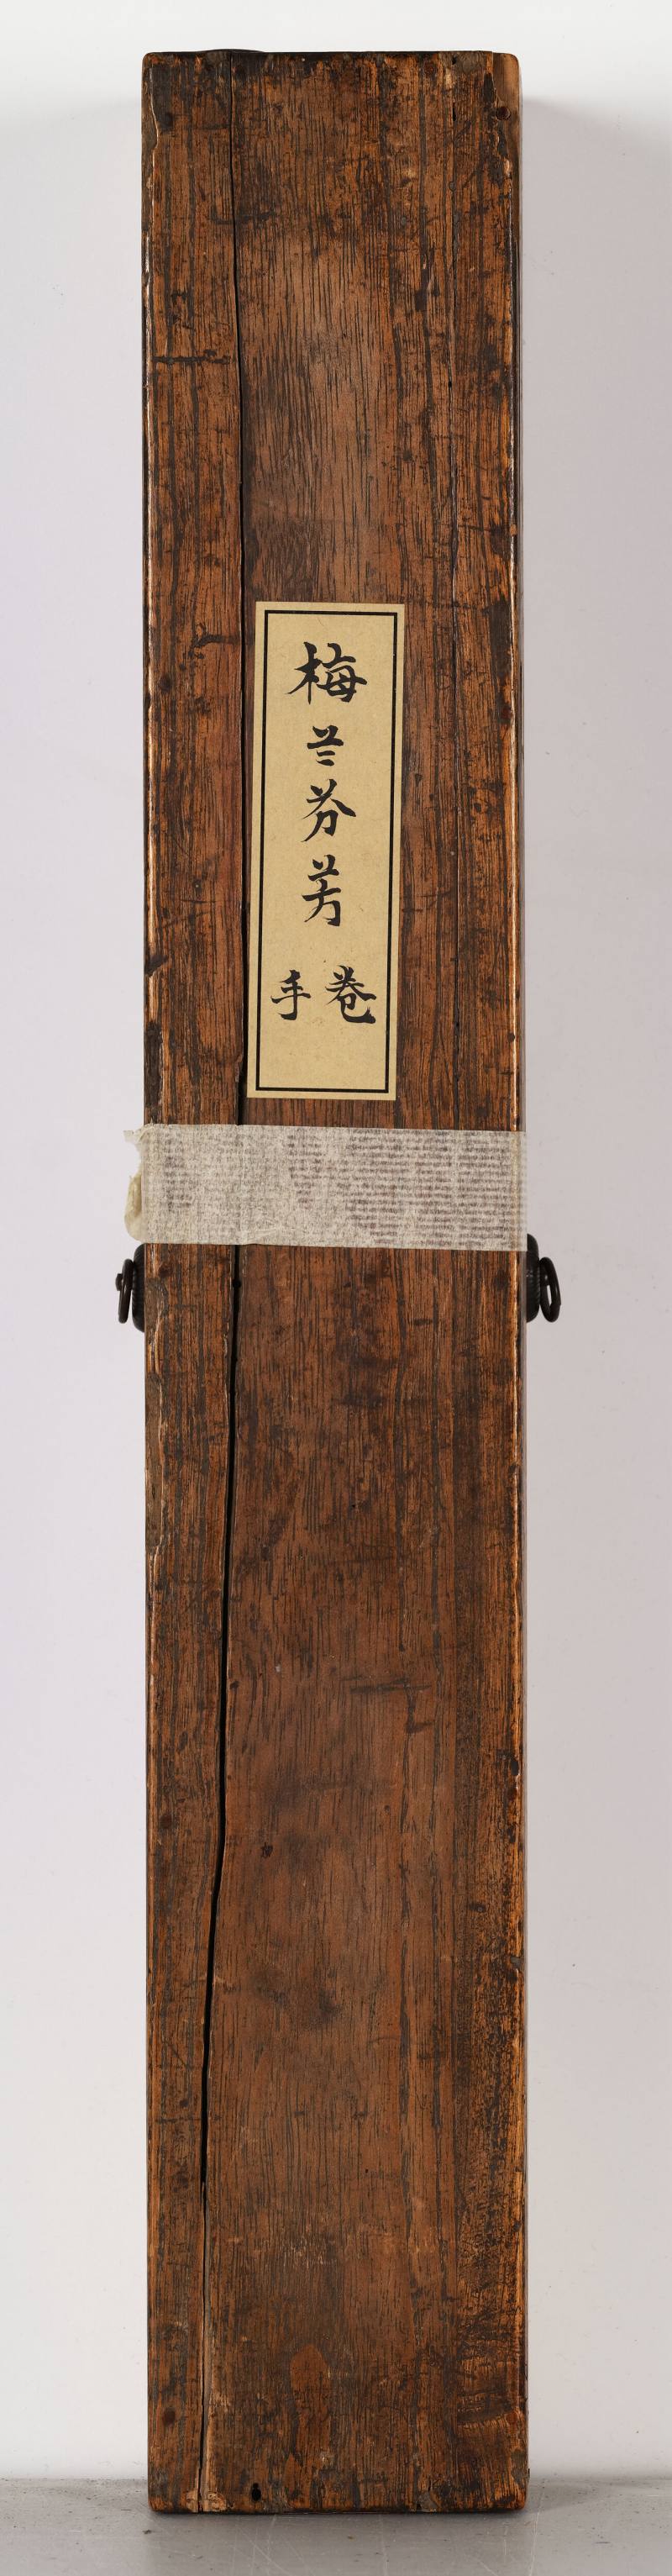 梅兰芬芳
手卷